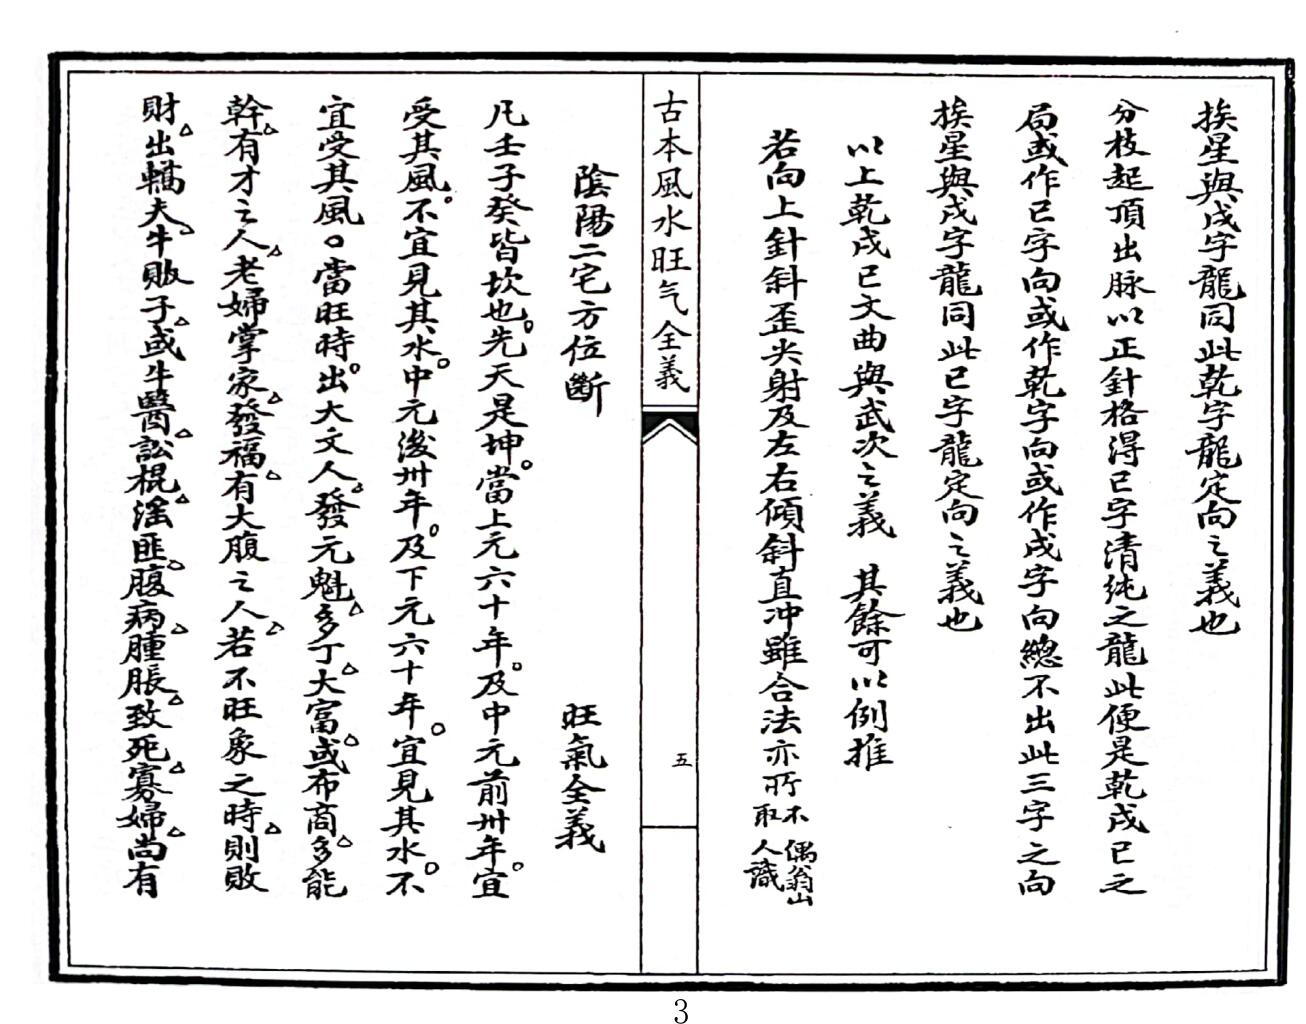 挨星與戌字龍同此乾字龍定向之義也
分枝起頂出脉以正針格得巳字清純之龍此便是乾戌巳之
局或作巳字向或作乾字向或作戌字向總不出此三字之向
挨星與戌字龍同此巳字龍定向之義也
以上乾戌巳文曲與武次之義 其餘可以例推
若向上針斜歪尖射及左右傾斜直冲雖合法亦所不取 偶翁山人識
古本風水旺气全義
五
陰陽二宅方位斷 旺氣全義
凡壬子癸皆坎也。先天是坤。當上元六十年。及中元前卅年。宜
受其風。不宜見其水。中元後卅年。及下元六十年。宜見其水。不
宜受其風。當旺時。出大文人發元魁多丁大富或布商多能
幹有才之人老婦掌家發福有大腹之人若不旺象之時則敗
財出轎夫牛販子或牛醫訟棍淫匪腹病腫脹致死寡婦尚有
3